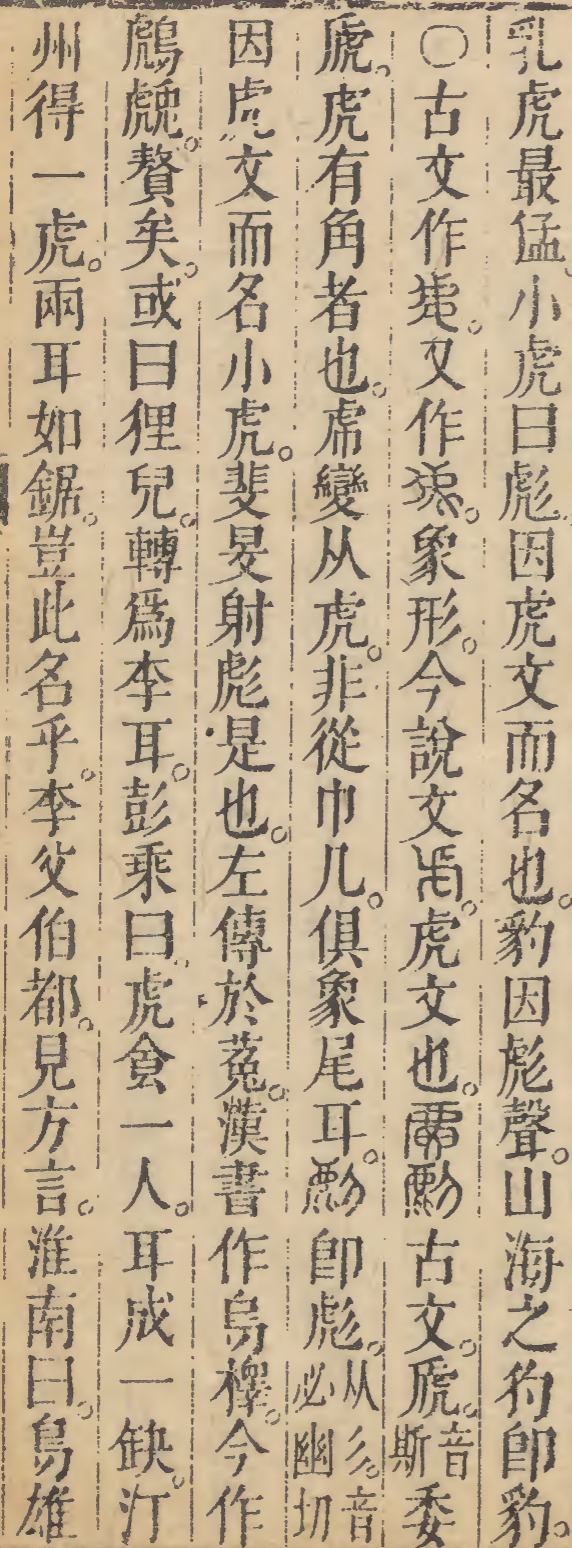 乳虎最猛。小虎曰彪。因虎文而名也。豹因彪聲。山海之犳即豹。
〇古文作。又作。象形。今說文虍。虎文也。古文。虒。音斯委
虒。虎有角者也。虎變从虎。非從巾几。俱象尾耳。即彪。从彡。音必幽切
因虎文而名小虎。斐旻射彪是也。左傳於菟。漢書作烏檡。今作
䖘贅矣。或曰狸兒。轉為李耳。彭乘曰。虎食一人。耳成一缺。汀
州得一虎。兩耳如鋸。豈此名乎。李父伯都。見方言。淮南曰。烏雄